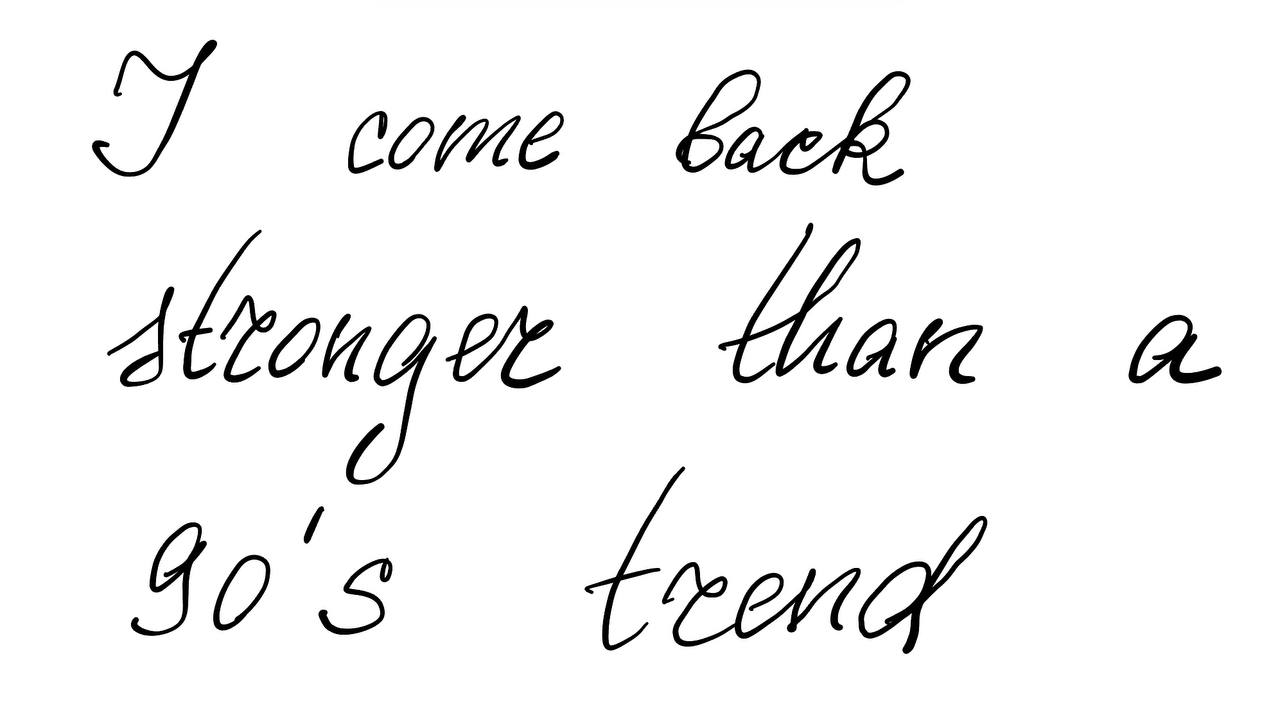 I come back
stronger than a
90's trend